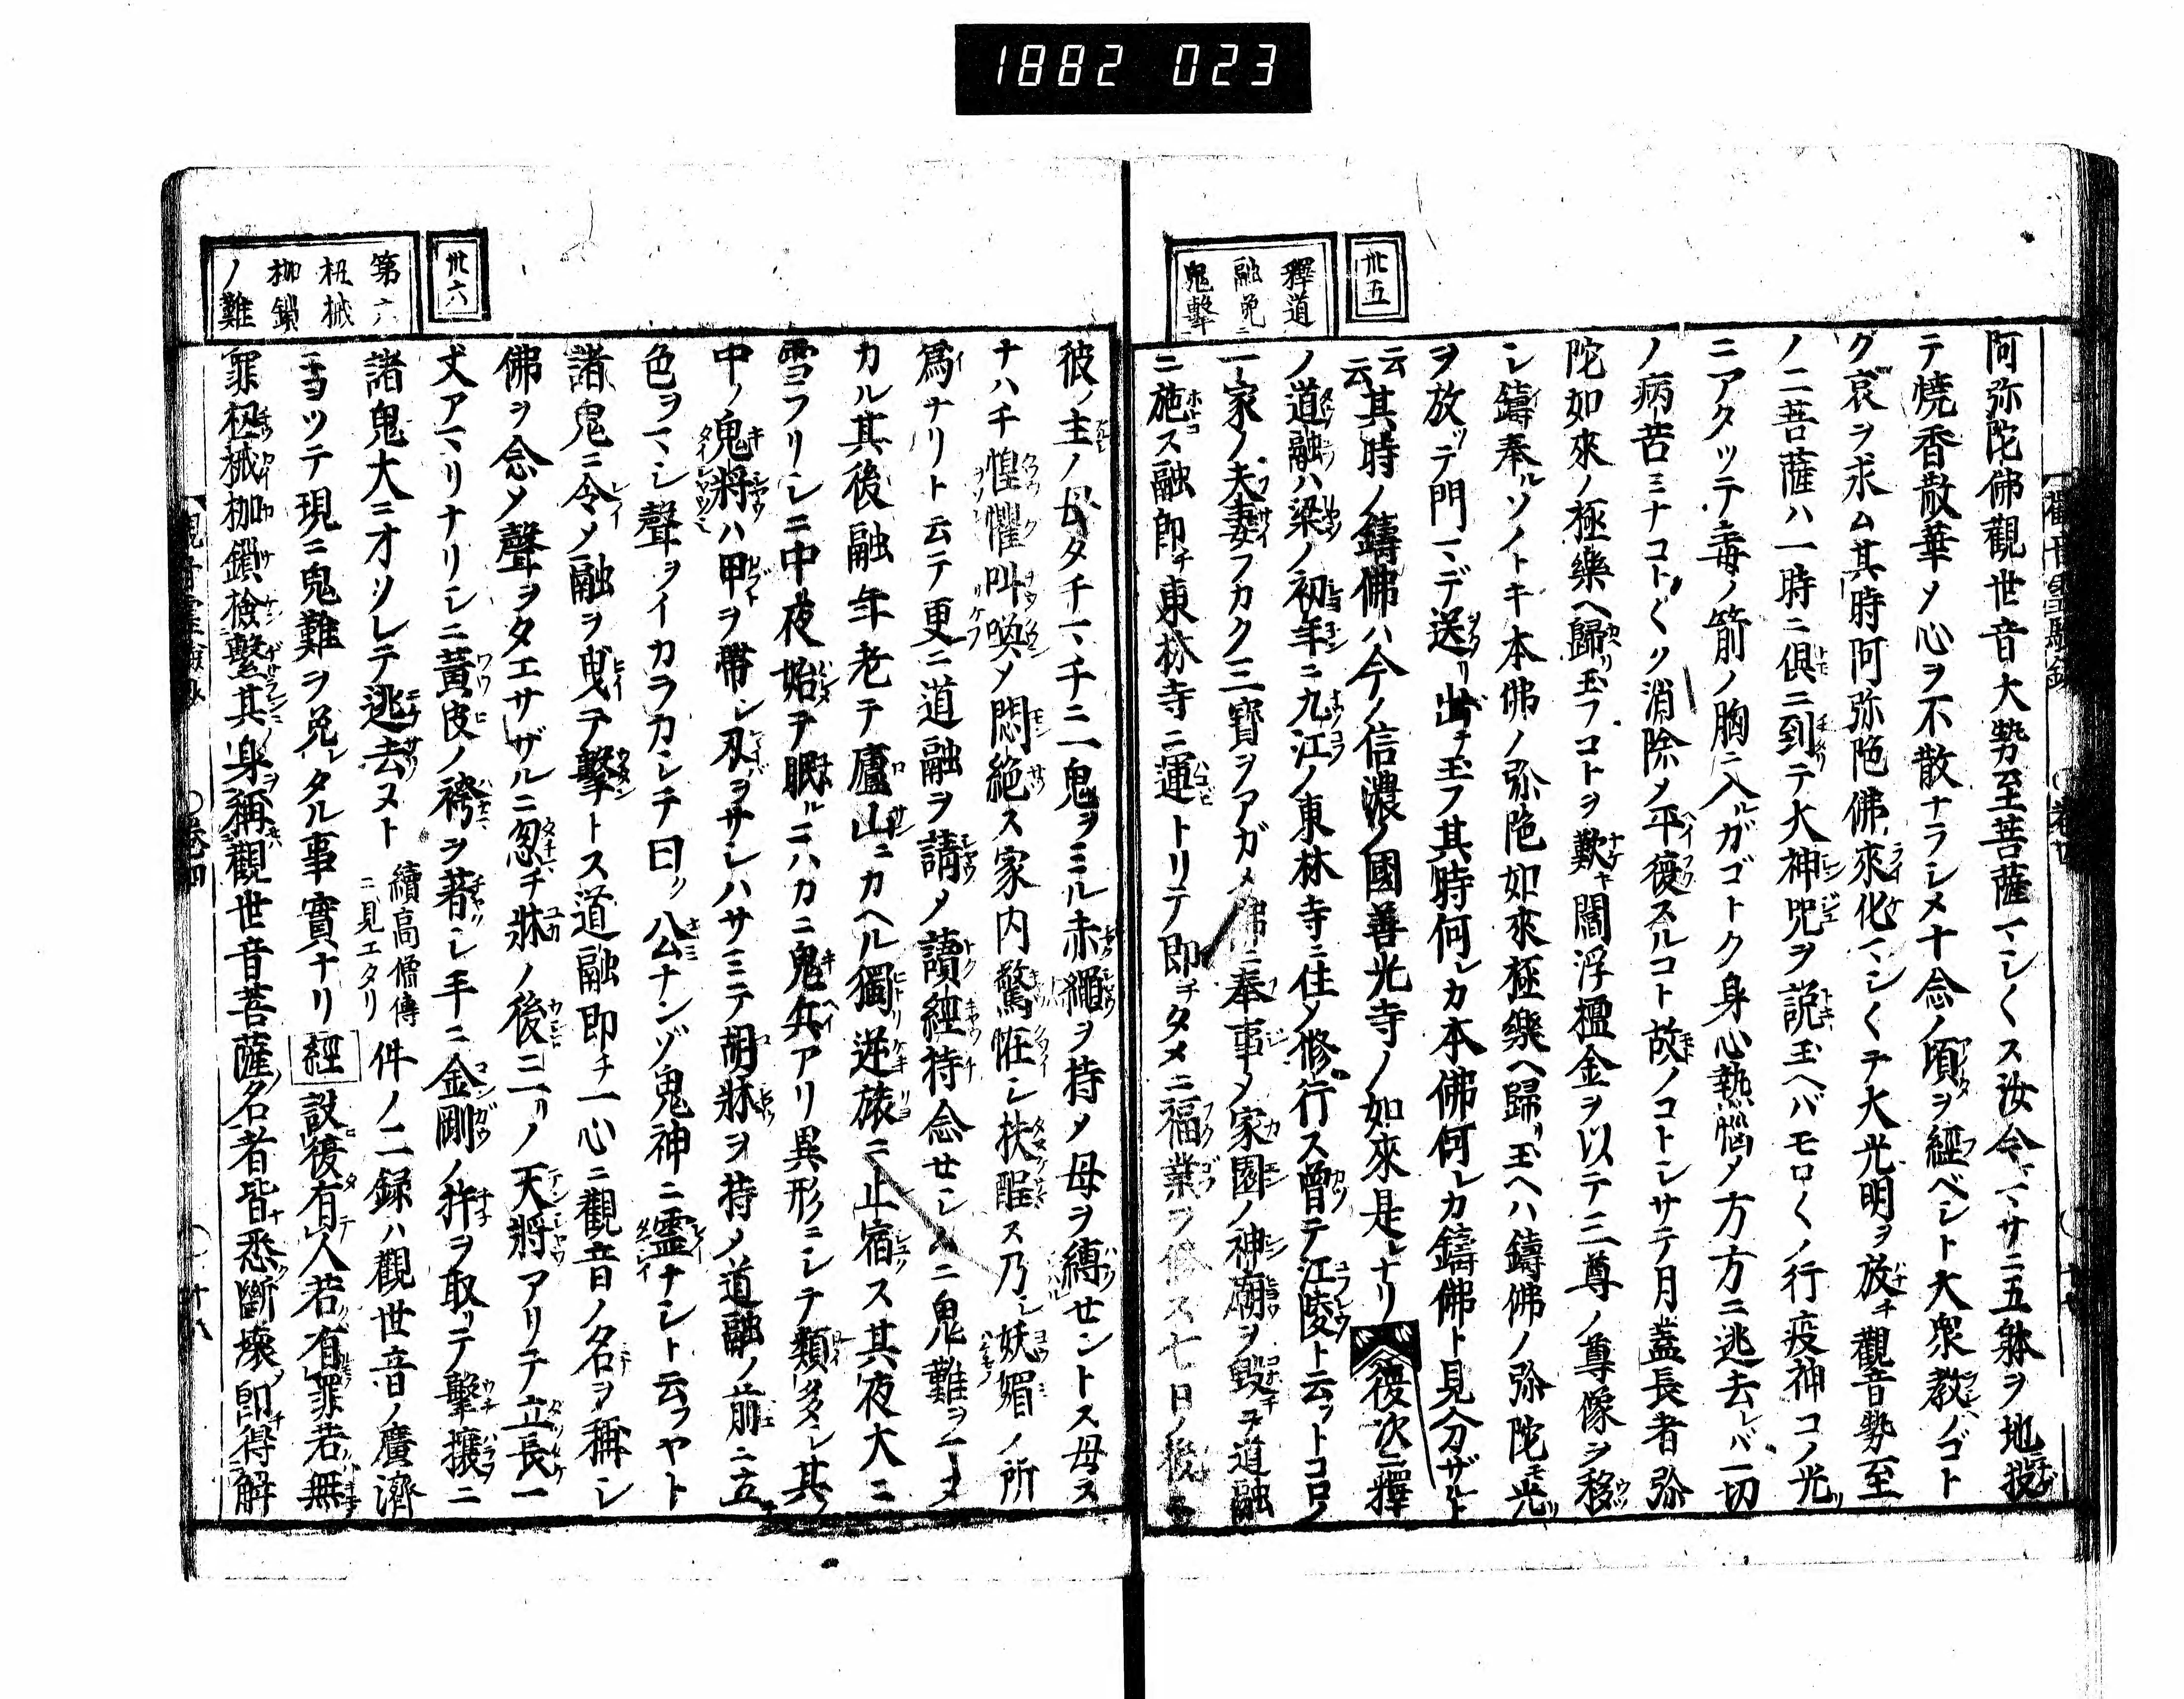 1882 023
卅五
釋道
融免ニ
鬼擊
阿弥陀佛觀世音大勢至菩薩マシ〱ス汝今マサニ五躰ヲ地ニ投
テ燒香散華メ心ヲ不散ナラシメ十念ノ頃ヲ經ベシト大衆教ノゴト
グ哀ヲ求ム其時阿弥陀佛來化マシ〱テ大光明ヲ放チ觀音勢至
ノ二菩薩ハ一時ニ俱ニ到テ大神呪ヲ説玉ヘバモロ〱ノ行疫神コノ光
ニアタッテ毒ノ箭ノ胸ニ入ルガゴトク身心熱惱メ方方ニ逃去レバ一切
ノ病苦ミナコト〲ク消除メ平復スルコト故ノコトシサテ月蓋長者弥
陀如來ノ極樂ヘ歸リ玉フコトヲ歎キ閻浮檀金ヲ以テ三尊ノ尊像ヲ移
シ鑄奉ルソノトキ本佛ノ弥陀如來極樂ヘ歸リ玉ヘハ鑄佛ノ弥陀モ光
ヲ放ッテ門マデ送リ出玉フ其時何レカ本佛何レカ鑄佛ト見分ザルト
云云其時ノ鑄佛ハ今ノ信濃ノ國善光寺ノ如來是レナリ 復次ニ釋
ノ道融ハ梁ノ初年ニ九江ノ東林寺ニ住メ修行ス曾テ江陵ト云フトコロノ
一家ノ夫妻フカク三寶ヲアガメ佛ニ奉事メ家園ノ神廟ヲ毀チ道融
ニ施ス融即チ東林寺ニ運トリテ即チタメニ福業ヲ修ス七日ノ後ニ
卅六
第六
杻械
枷鎖
ノ難
彼ノ主ノ母タチマチニ一鬼ヲミル赤繩ヲ持メ母ヲ縛セントス母ス
ナハチ惶懼叫喚メ悶絶ス家内驚恠シ扶醒ス乃シ妖媚ノ所
爲ナリト云テ更ニ道融ヲ請メ讀經持念セシムニ鬼難ヲマヌ
カル其後融年老テ廬山ニカヘル獨逆旅ニ止宿ス其夜大ニ
雪フリシニ中夜始テ眠ルニハカニ鬼兵アリ異形ニシテ類多シ其
中ノ鬼將ハ甲ヲ帶シ刄ヲサシハサミテ胡牀ヲ持メ道融ノ前ニ立
色ヲマシ聲ヲイカラカシテ曰ク公ナンゾ鬼神ニ靈ナシト云フヤト
諸鬼ニ令メ融ヲ曳テ擊トス道融即チ一心ニ觀音ノ名ヲ稱シ
佛ヲ念メ聲ヲタエサザルニ忽チ牀ノ後ニ一リノ天將アリテ立長一
丈アマリナリシニ黄皮ノ袴ヲ著シ手ニ金剛ノ杵ヲ取リテ擊攘ニ
諸鬼大ニオソレテ逃去ヌト 續高僧傳ニ見エタリ 件ノ二録ハ觀世音ノ廣濟
ニヨッテ現ニ鬼難ヲ免レタル事實ナリ 經 設復有人若有罪若無
罪杻械枷鎖檢繫其身稱觀世音菩薩名者皆悉斷壞即得解